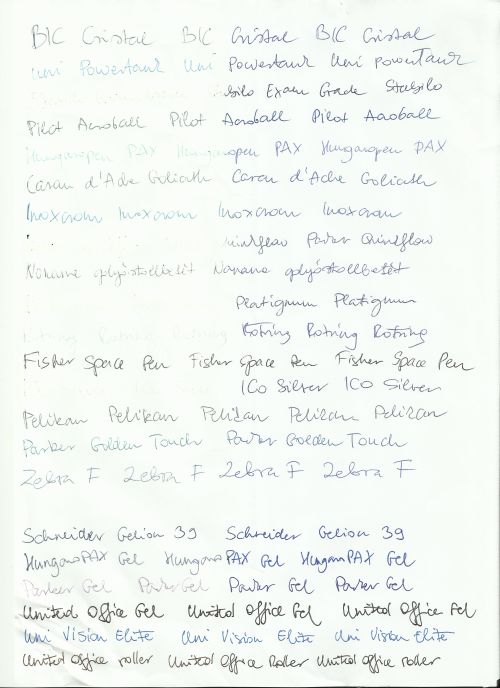 BIC Cristal BIC Cristal BIC Cristal
Uni Powertank Uni Powertank Uni PowerTank
bilo Exam Grade Stabilo
Pilot Acroball Pilot Acroball Pilot Acroball
Hungaropen PAX Hungaropen PAX Hungaropen PAX
Caran d'Ache Goliath Caran d'Ache Goliath
Inoxcrom Inoxcrom Inoxcrom Inoxcrom
Parker Quinkflow
golyóstollbetét golyóstollbetét
Platignum Platignum
Rotring Rotring Rotring Rotring Rotring Rotring
Fisher Space Pen Fisher Space Pen Fisher Space Pen
ICO Silver ICO Silver
Pelikan Pelikan Pelikan Pelikan Pelikan
Parker Golden Touch Parker Golden Touch
Zebra F Zebra F Zebra F Zebra F
Schneider Gelion 39 Schneider Gelion 39
HungaroPAX Gel HungaroPAX Gel HungaroPAX Gel
Parker Gel Parker Gel Parker Gel Parker Gel
United Office Gel United Office Gel United Office Gel
Uni Vision Elite Uni Vision Elite Uni Vision Elite
United Office roller United Office Roller United Office roller